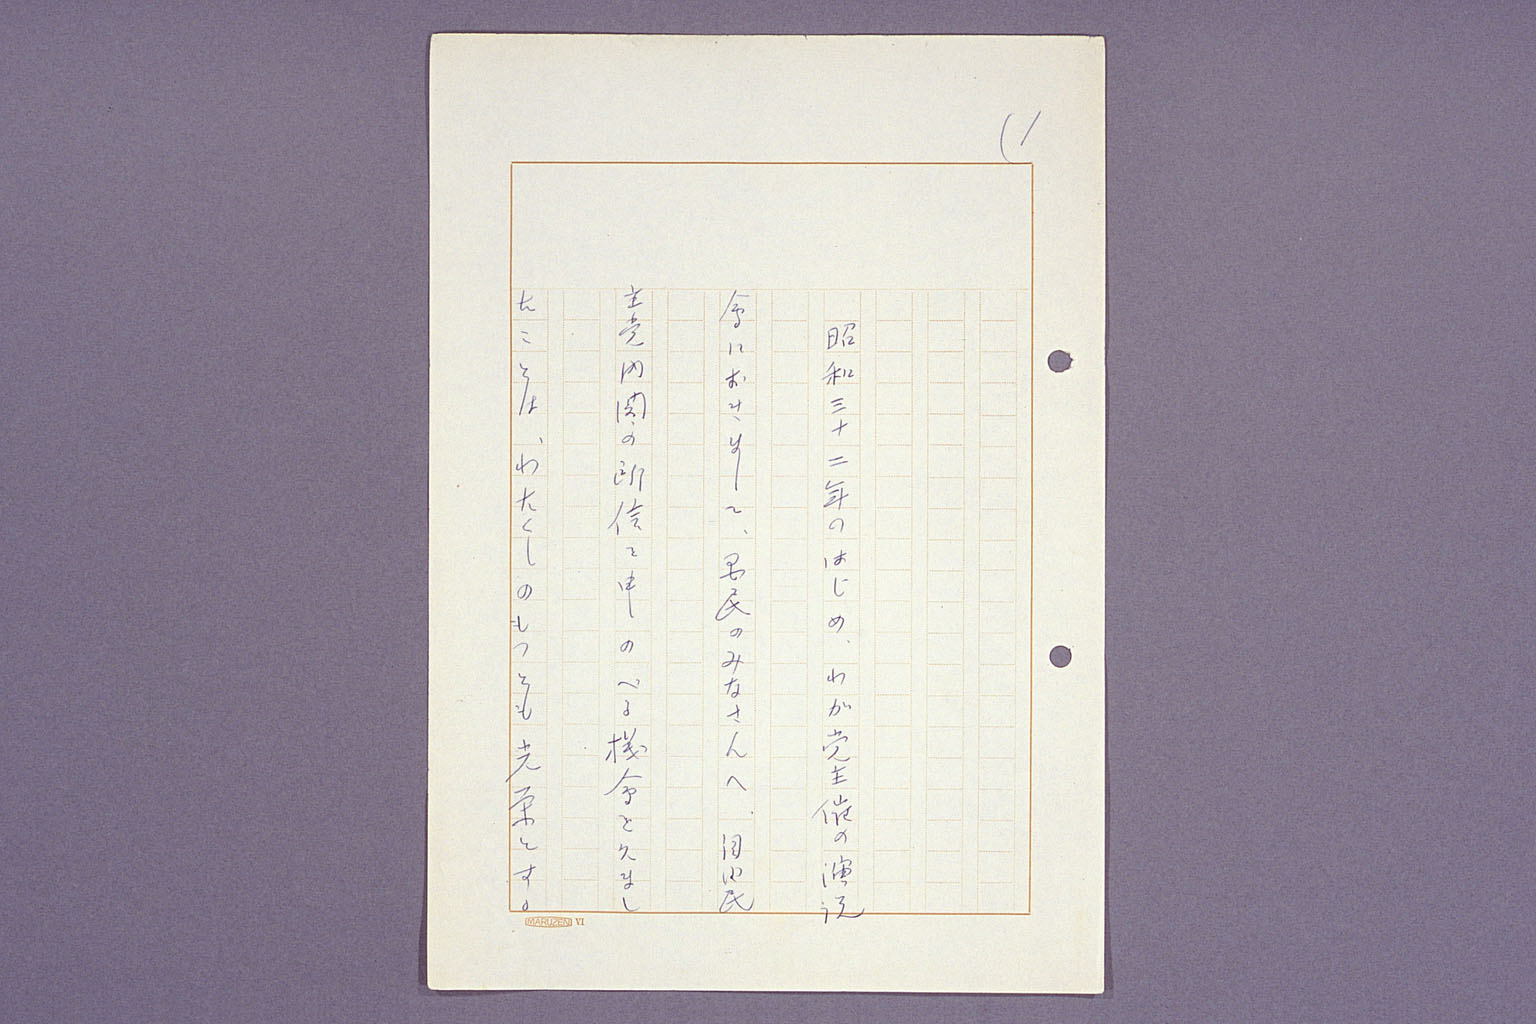 (1
昭和三十二年のはじめ、わが党主催の演説
会におきまして、国民のみなさんへ、自由民
主党内閣の所信を申しのべる機会をえまし
たことは、わたくしのもつとも光栄とする
MARUZEN VI